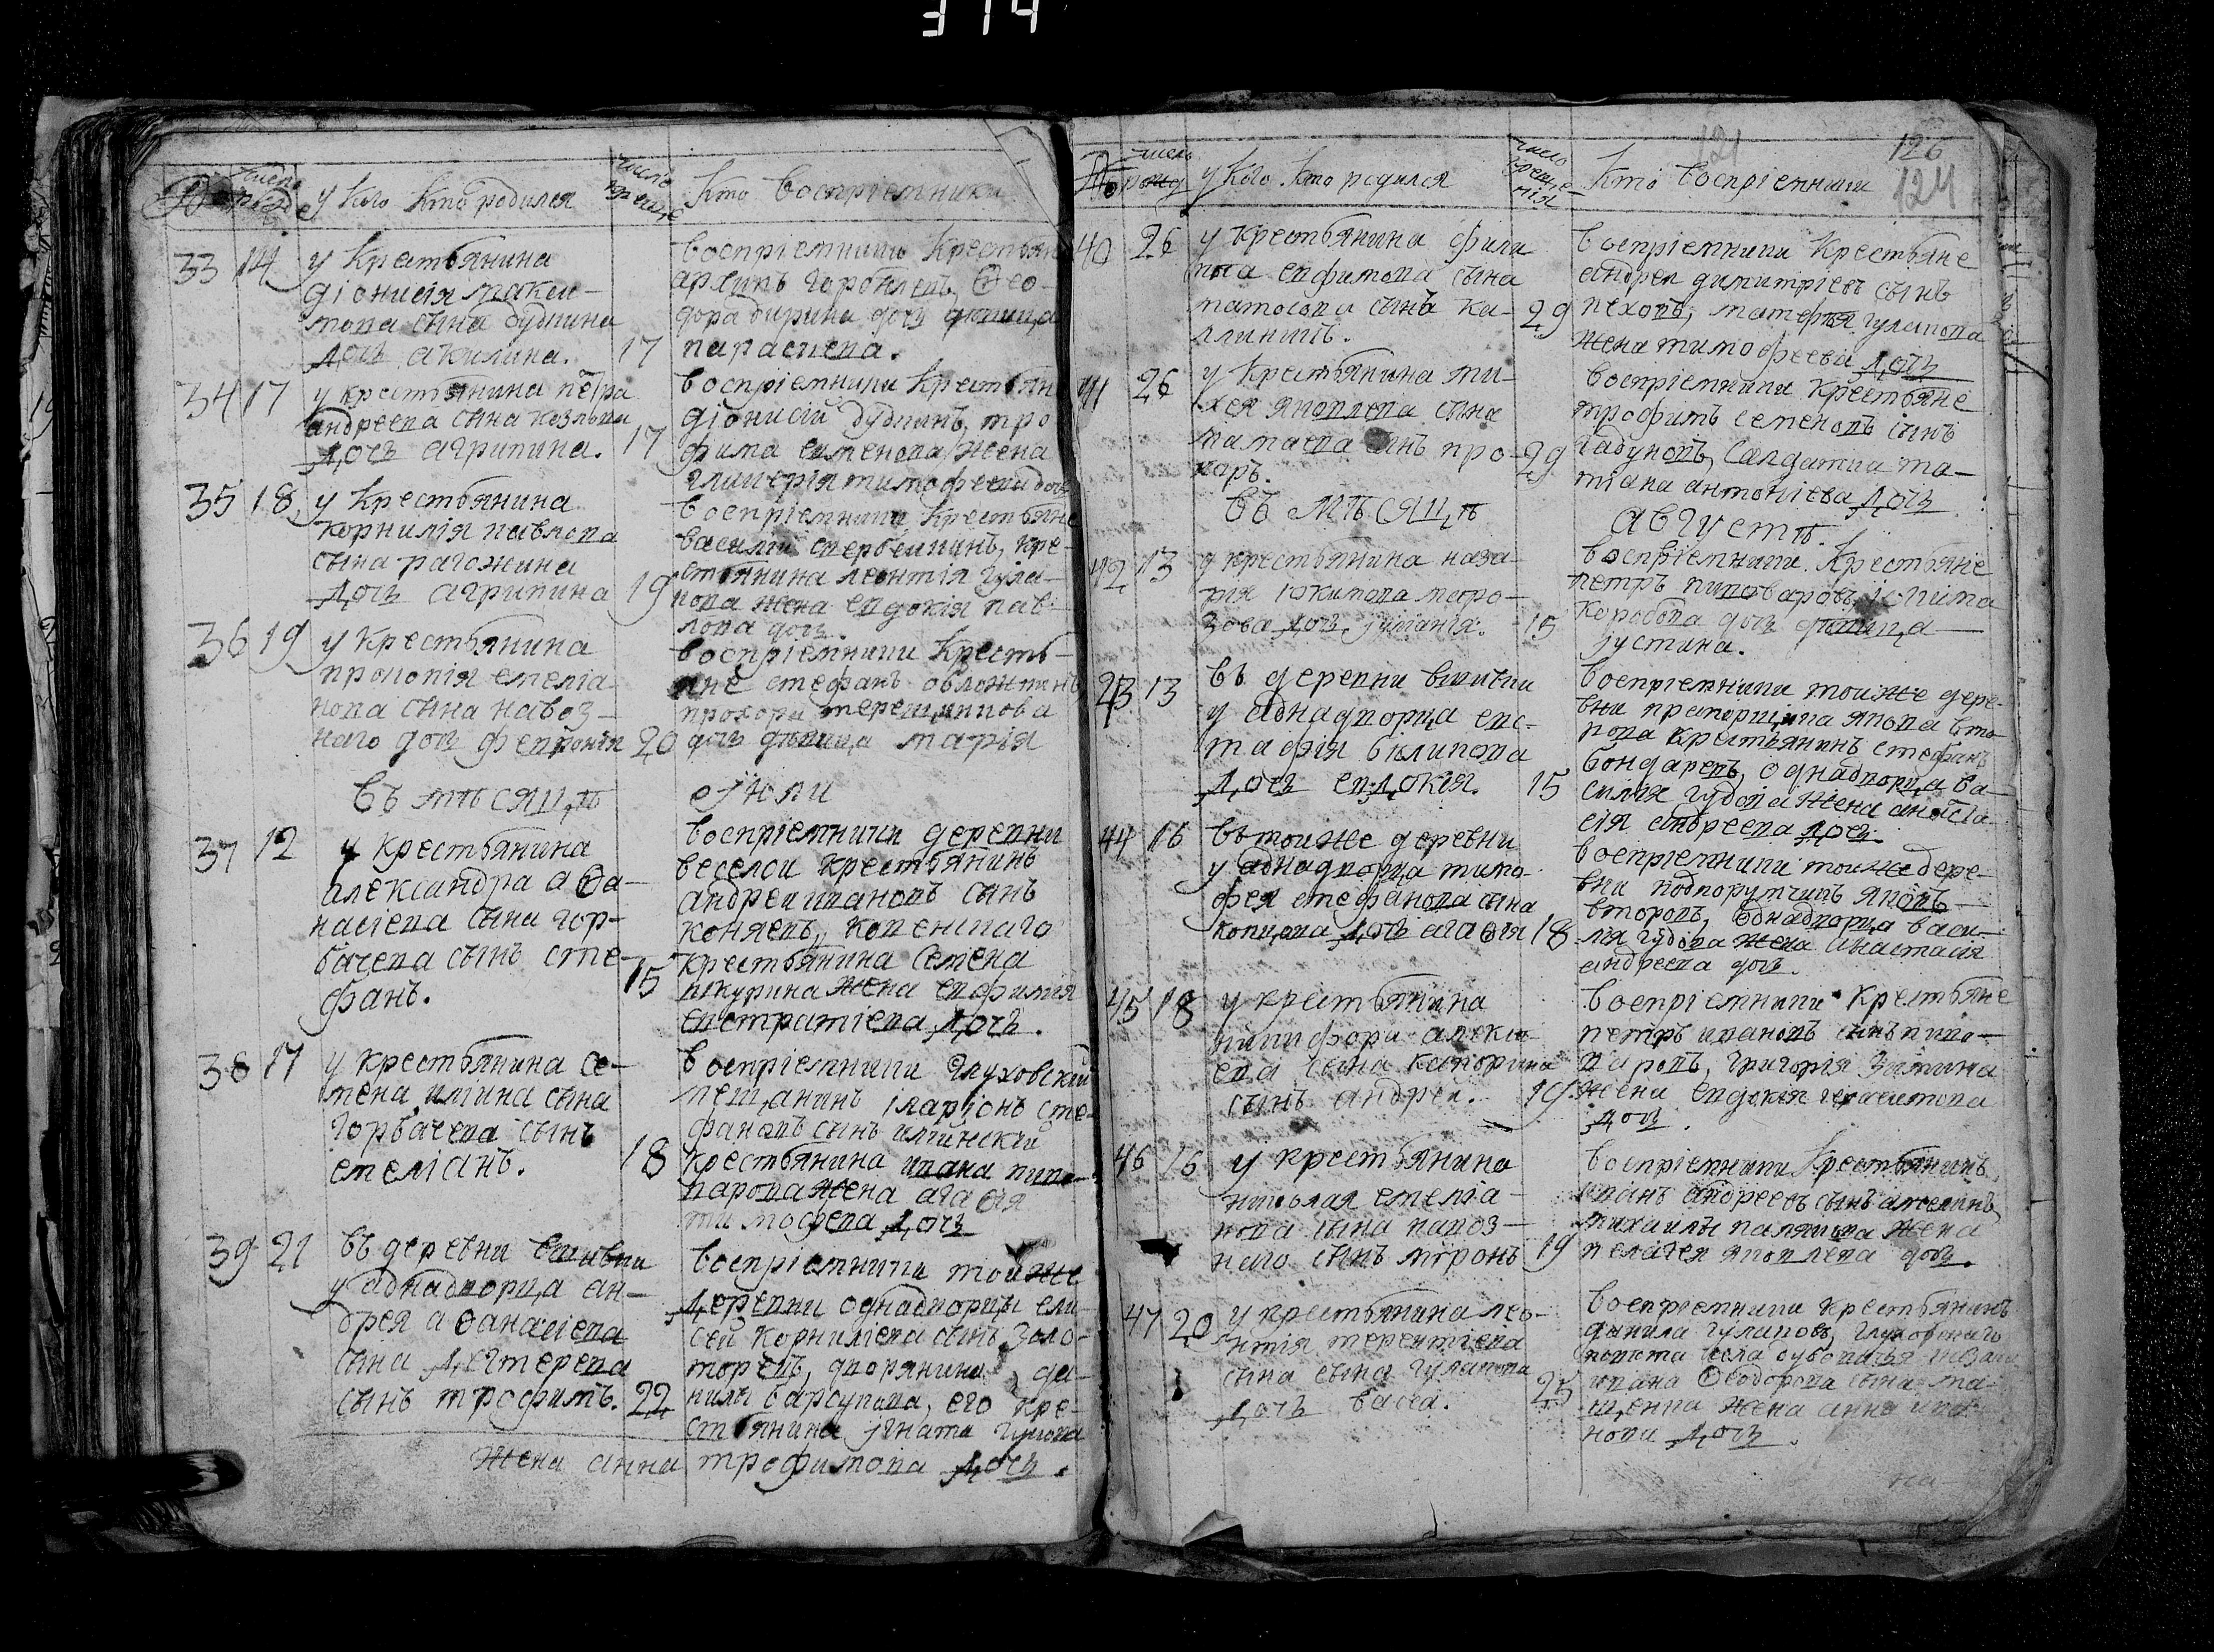 314
число
у кого кто родился
число креще
кто восприемники
33 14 у крестьянина
дионисія макси-
мова сына дудкина
дочь акилина. 17
восприемники крестьян
архипъ горбачевъ, Ѳео-
дора бирина дочь девица
параскева.
34 17 у крестьянина петра
андреева сына козлова
дочь агрипина. 17
восприемники крестьян
діонисій дудкинъ, тро
фима семенова жена
гликерія тимофеева дочь
35 18 у крестьянина
корнилія павлова
сына рагожина
дочь агрипина 19
восприемники крестьяне
василій щербинанъ, кре-
стьянина леонтія гула-
нова жена евдокія пав-
лова дочь.
36 19 у крестьянина
прокопія емеліа-
нова сына навоз-
наго дочь февронія 20
восприемники кресть-
яне стефанъ обложкинъ
прохора терещинова
дочь девица марія
въ мѣсяцѣ іюли
37 12 у крестьянина
александра аѳа-
насіева сына гор-
бачева сынъ сте-
фанъ. 15
восприемники деревни
веселой крестьянинъ
андрей ивановъ сынъ
коняевъ, копенкаго
крестьянина семена
пекурина жена евфимія
евстратіева дочь.
38 17 у крестьянина се-
мена иліина сына
горбачева сынъ
емеліанъ. 18
восприемники глуховский
мещанинъ іларіонъ сте-
фановъ сынъ илинский
крестьянина ивана пиво-
варова жена агаѳія
тимофеева дочь
39 21 въ деревни вшивки
у аднадворца ан-
дрея аѳанасіева
сына дехтерева
сынъ трофимъ. 22
восприемники тойже
деревни однадворцы ели-
сей корниліева сынъ золо-
торевъ, дворянина да-
нилы барсукова, его кре-
стьянина ігната гукова
жена анна трофимова дочь.
число
у кого кто родился
число креще-
нія
кто восприемники
121
126
124
40 26 у крестьянина фили
па ефимова сына
матохова сынъ ка-
линикъ. 29
восприемники крестьяне
андрей димитріевъ сынъ
пеховъ, матфея гулакова
жена тимофеева дочь
41 26 у крестьянина ми-
хея яковлева сына
мамаева сынъ про-
хоръ. 29
восприемники крестьяне
трофимъ семеновъ сынъ
гадуновъ, салдатка та-
тіана антоніева дочь
въ мѣсяцѣ августѣ.
42 13 у крестьянина наза-
рія іокимова моро-
зова дочь іуліанія. 15
восприемники крестьяне
петръ пивоваровъ, іокима
коробова дочь девица
іустина.
43 13 въ деревни вшивки
у аднадворца евс-
тафія бкликова
дочь евдокія. 15
восприемники тойже дере-
вни прапорщика якова вто-
рова крестьянинъ стефанъ
бондаревъ, однадворца ва-
силія гудова жена анаста-
сія андреева дочь.
44 16 въ тойже деревни
у аднадворца тимо-
фея стефанова сына
копцова дочь агаѳія 18
восприемники тойже дере-
вни подпорутчикъ яковъ
второвъ, однадворца васи-
лія гудова жена анастасія
андреева дочь.
45 18 у крестьянина
никифора алексе-
ева сына касторина
сынъ андрей. 19.
восприемники крестьяне
петръ ивановъ сынъ пиво-
варовъ, григорія зимина
жена евдокія герасимова
дочь.
46 16 у крестьянина
николая емеліа-
нова сына навоз-
наго сынъ миронъ 19
восприемники крестьянинъ
иванъ андреевъ сынъ
михаилы жена
пелагея яковлева дочь.
47 20 у крестьянина лео-
нтія терентіева
сына сына гулакова
дочь васса. 25
восприемники крестьянинъ
данила гулаковъ, глуховскаго
повета села
ивана Ѳеодорова сына ма-
щенка жена анна ива-
нова дочь.
на-